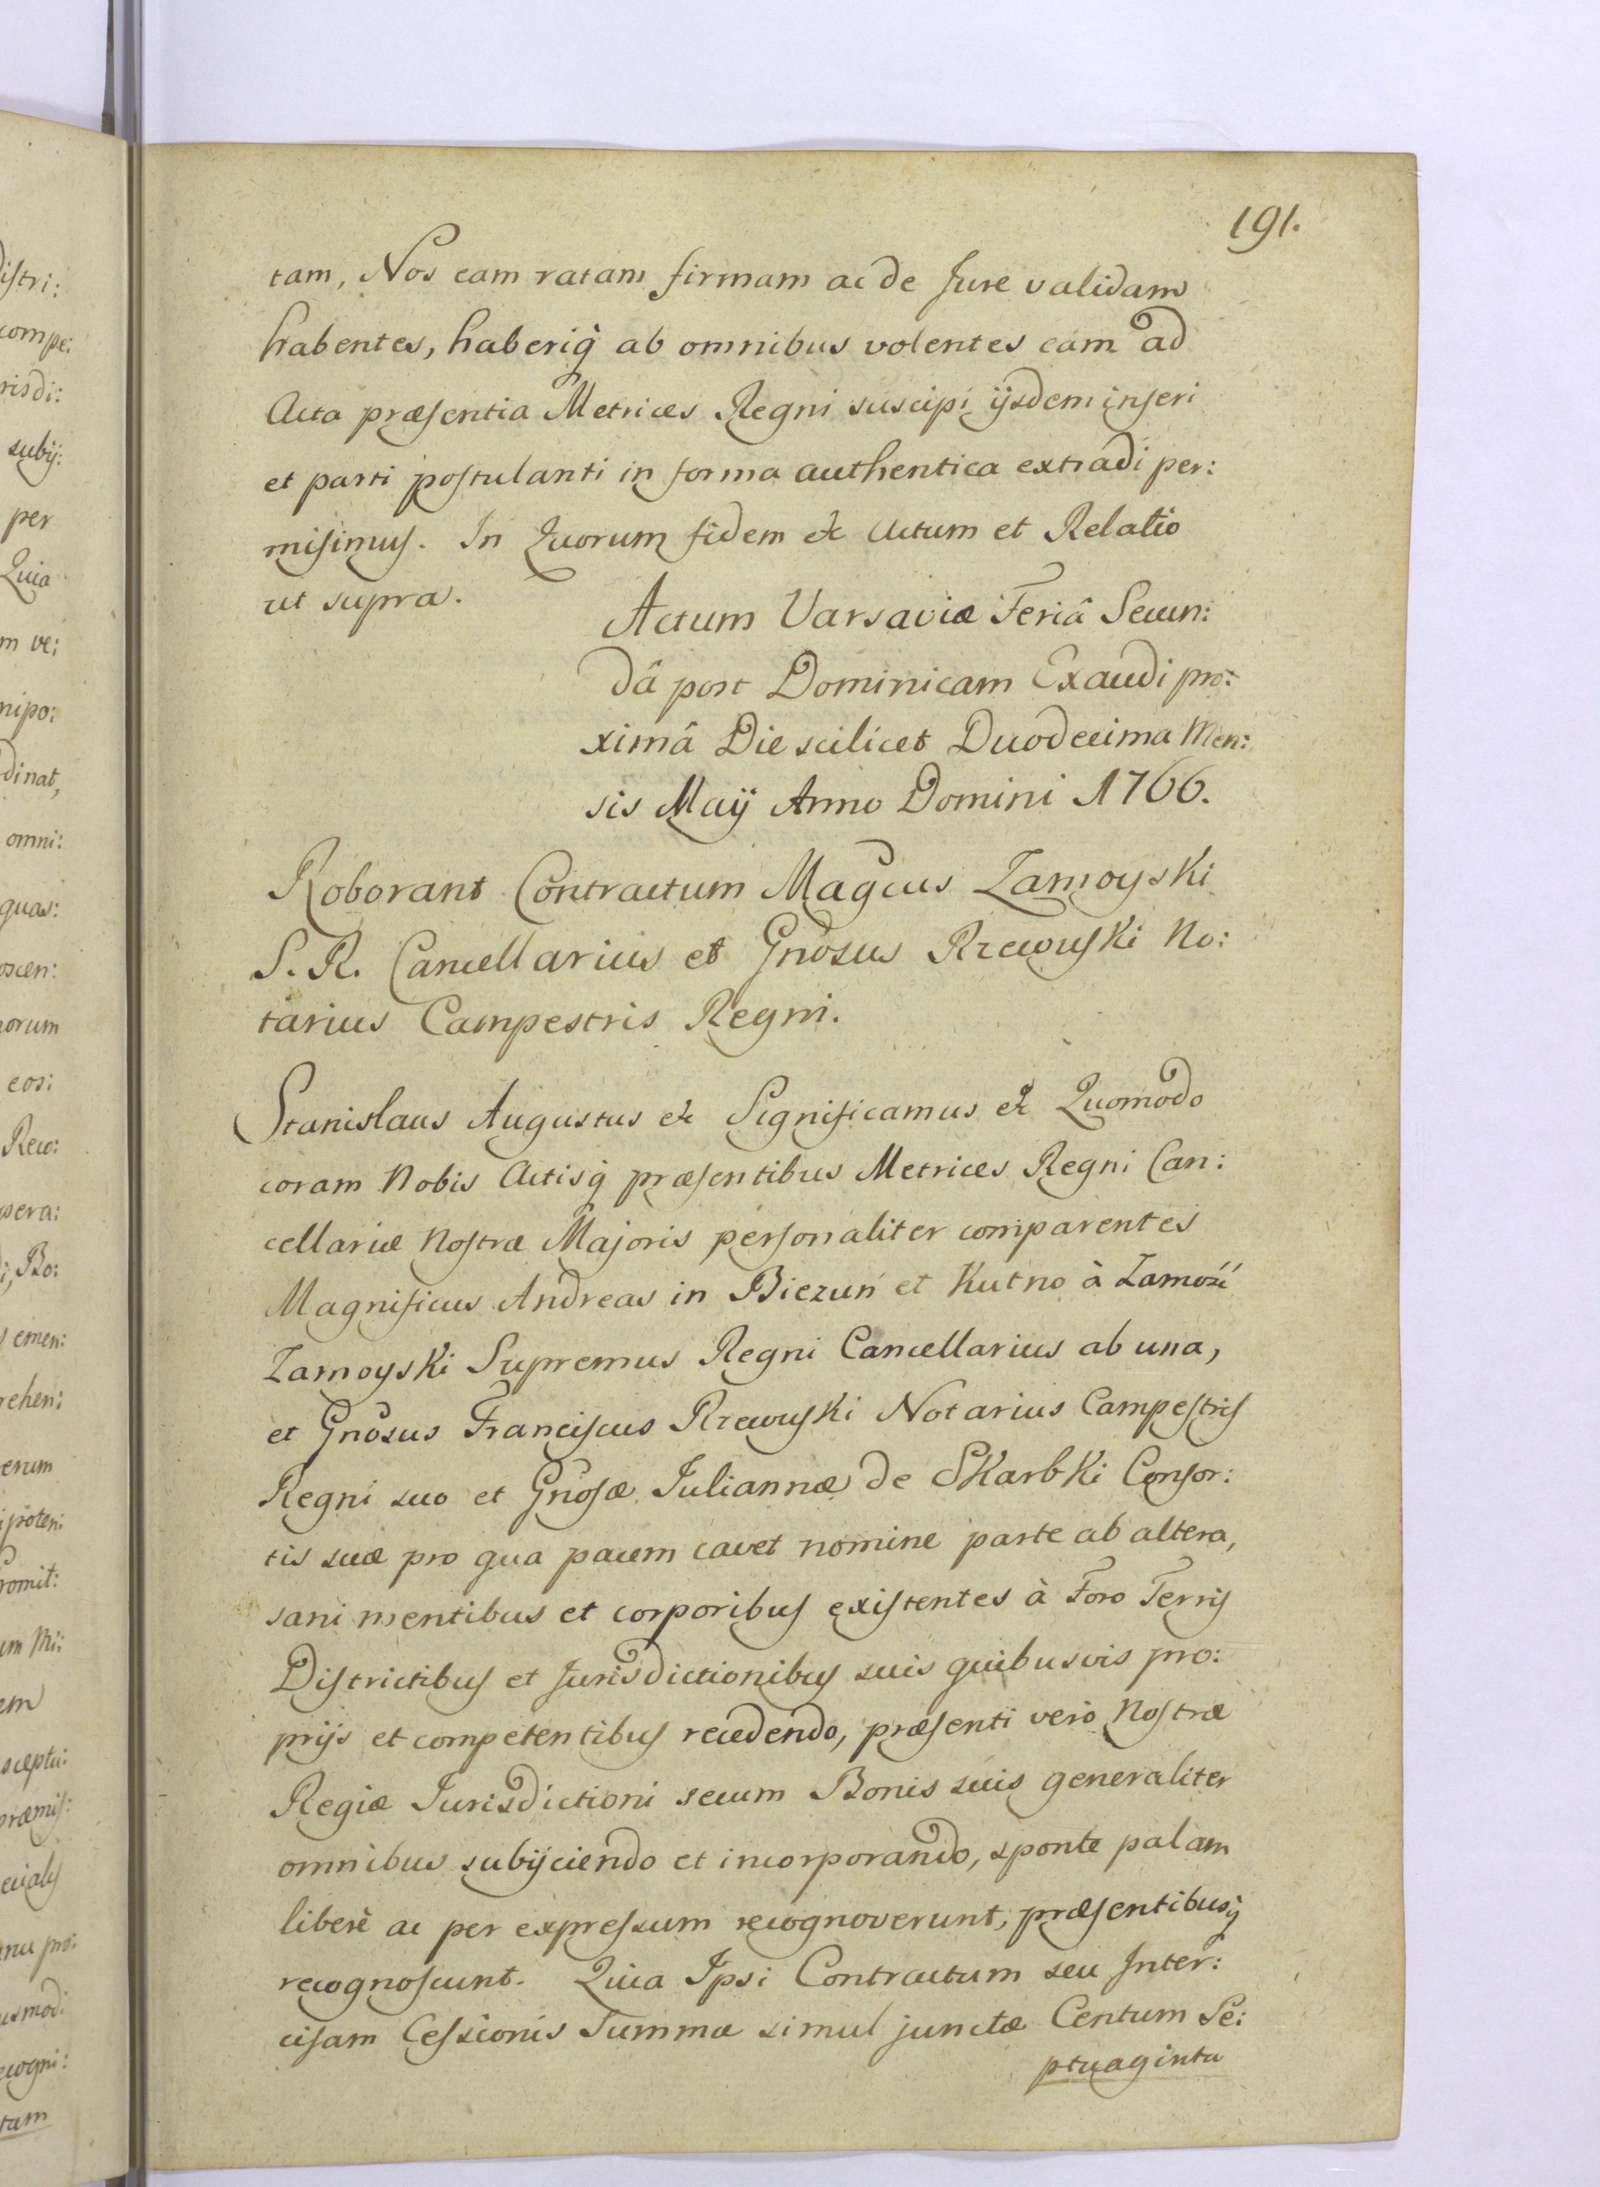 191.
tam, Nos eam ratam firmam ac de Jure validam
habentes, haberiq̀ ab omnibus volentes eam ad
Acta præsentia Metrices Regni suscipi ijsdem inseri
et parti postulanti in forma authentica extradi per:
misimus. In Quorum fidem &c Actum et Relatio
ut supra.
Actum Varsaviæ Feriâ Secun:
dâ post Dominicam Exaudi pro:
ximâ Die scilicet Duodecima Men:
sis Maij Anno Domini 1766.
Roborant Contractum Magcus Zamoyski
S. R. Cancellarius et Gnosus Rzewuski No:
tarius Campestris Regni.
Stanislaus Augustus &c Significamus &c Quomodo
coram Nobis Actisq̀ præsentibus Metrices Regni Can:
cellariæ Nostræ Majoris personaliter comparentes
Magnificus Andreas in Biezuń et Kutno à Zamość
Zamoyski Supremus Regni Cancellarius ab una,
et Gnosus Franciscus Rzewuski Notarius Campestris
Regni suo et Gnosæ Juliannæ de Skarbki Consor:
tis suæ pro qua pacem cavet nomine parte ab altera,
sani mentibus et corporibus existentes à Foro Terris
Districtibus et Jurisdictionibus suis quibusvis pro:
prijs et competentibus recedendo, præsenti verò Nostræ
Regiæ Jurisdictioni secum Bonis suis generaliter
omnibus subijciendo et incorporando, sponte palam
liberè ac per expressum recognoverunt, præsentibusq̀
recognoscunt. Quia Ipsi Contractum seu Inter:
cisam Cessionis Summæ simul junctæ Centum Se:
ptuaginta
istri:
compe:
risdi:
subij:
per
Quia
m ve:
nipo:
dinat,
omni:
quas:
oscen:
norum
eos:
Reco:
sera:
Bo:
emen:
rehen:
erum
ipoten:
romit:
em
sceptu:
præmis:
ecialis
pro:
usmodi
ecogni:
tam